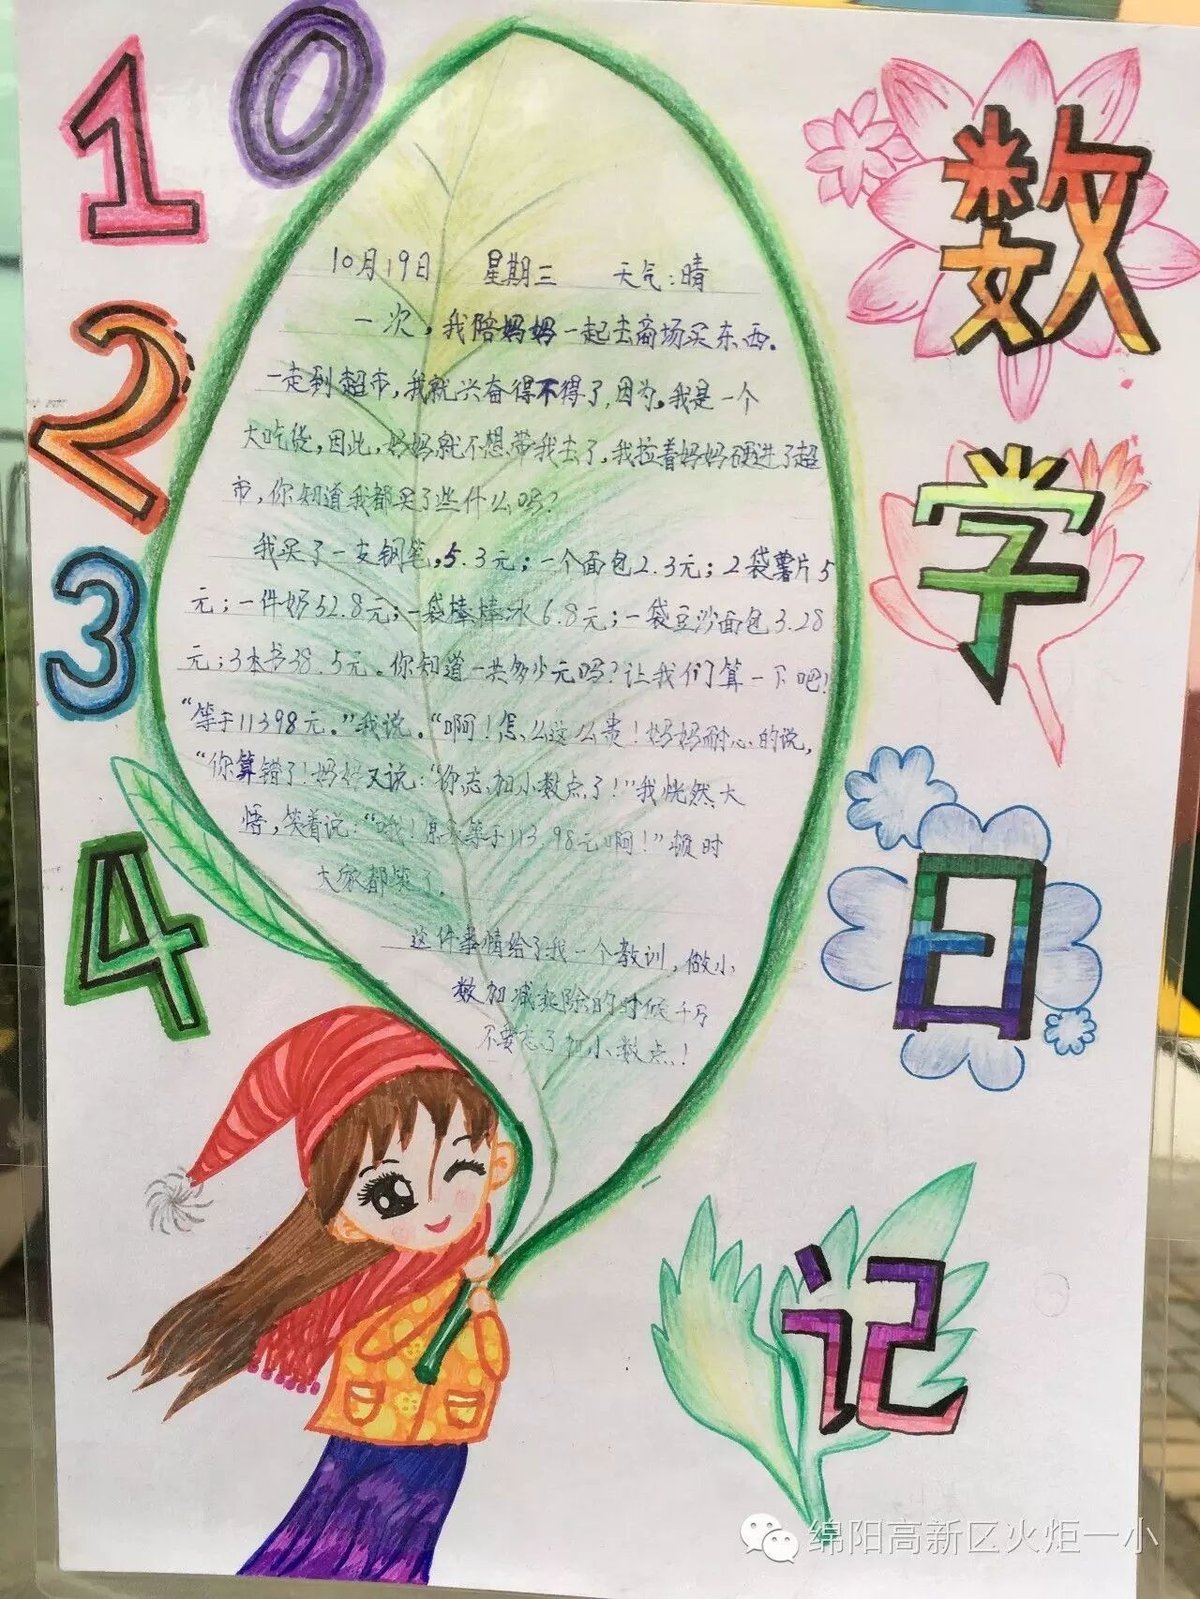 10
2
3
4
数
学
日
记
10月19日 星期三 天气:晴
一次,我陪妈妈一起去商场买东西。
一走到超市,我就兴奋得不得了,因为,我是一个
大吃货,因此,妈妈就不想带我去了,我拉着妈妈硬进了超
市,你知道我都买了些什么吗?
我买了一支钢笔,5.3元;一个面包2.3元;2袋薯片5
元;一件奶52.8元;一袋棒棒冰6.8元;一袋豆沙面包3.28
元;3本书38.5元。你知道一共多少元吗?让我们算一下吧!
“等于11398元。”我说。“啊!怎么这么贵!妈妈耐心的说,
“你算错了!妈妈又说:“你忘加小数点了!”我恍然大
悟,笑着说:“哦!原来等于113.98元啊!”顿时
大家都笑了。
这件事情给了我一个教训,做小
数加减乘除的时候千万
不要忘了加小数点!
绵阳高新区火炬一小